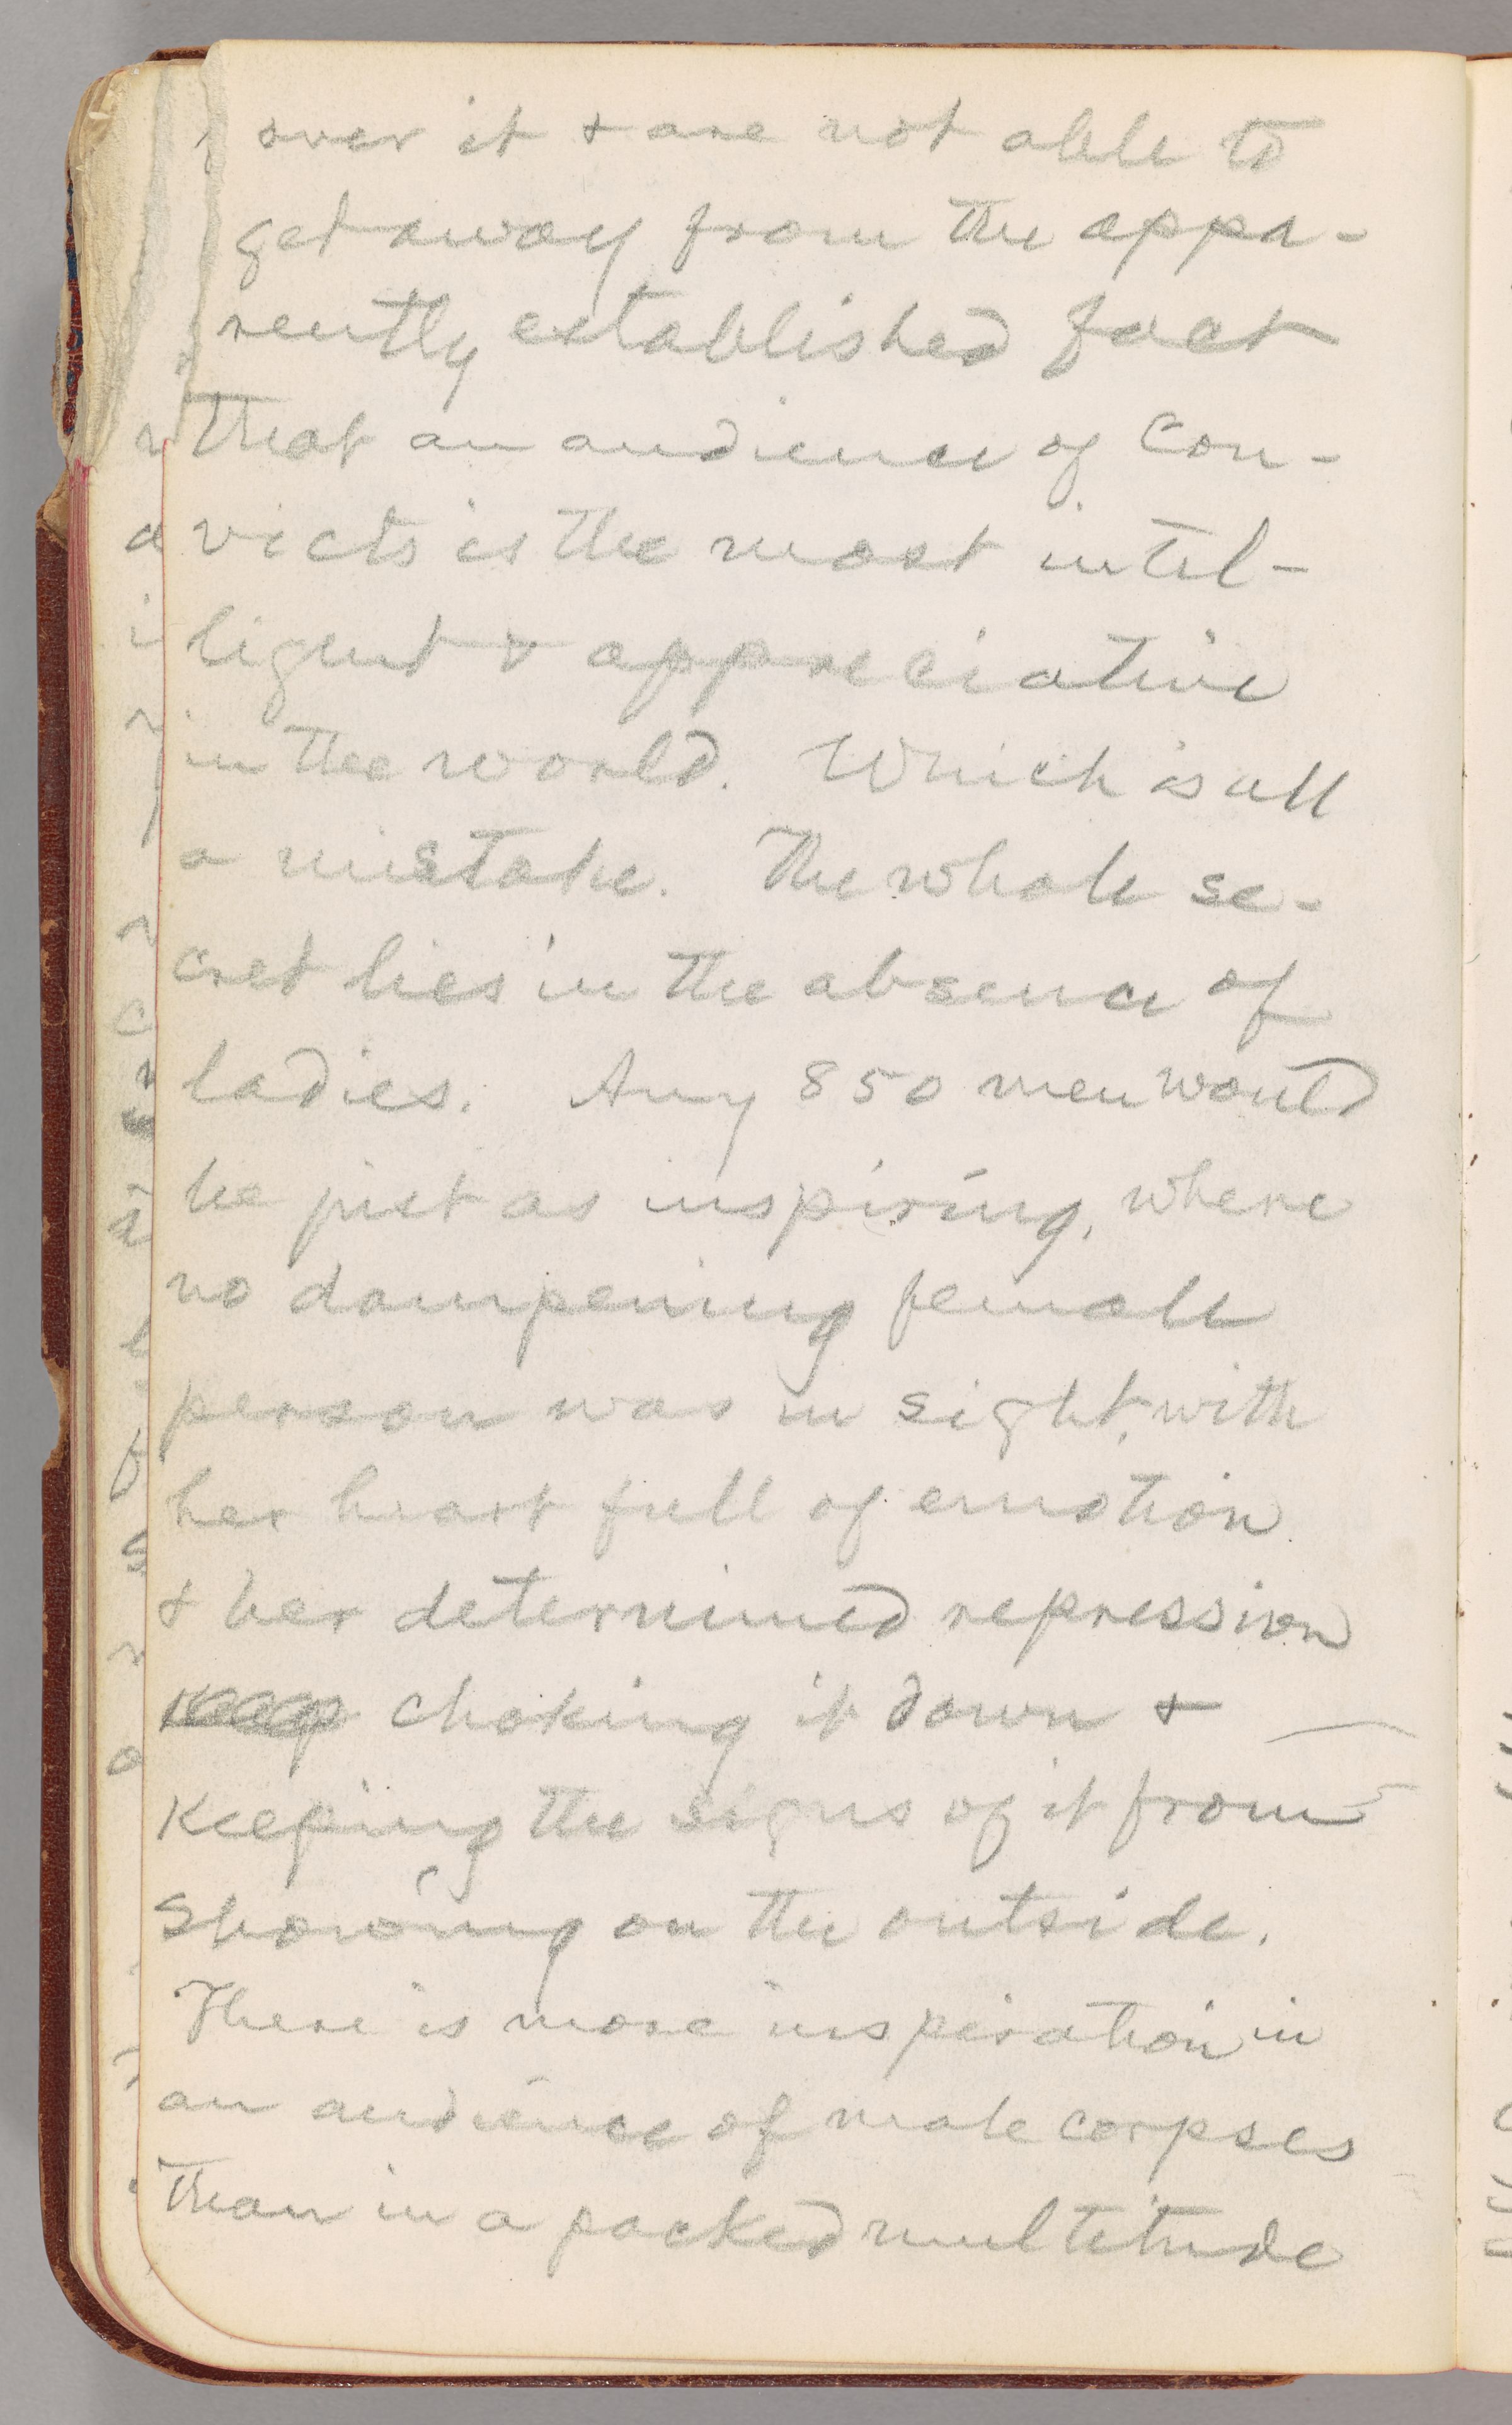 over it & are not able to
get away from the appa-
rently established fact
that an audience of con-
victs is the most intel-
ligent & appreciative
in the world. Which is all
a mistake. The whole se-
cret lies in the absence of
ladies. Any 850 men would
be just as inspiring, where
no dampening female
person was in sight, with
her heart full of emotion
& her determined repression
choking it down &
keeping the signs of it from
showing on the outside.
There is more inspiration in
an audience of male corpses
than in a packed multitude